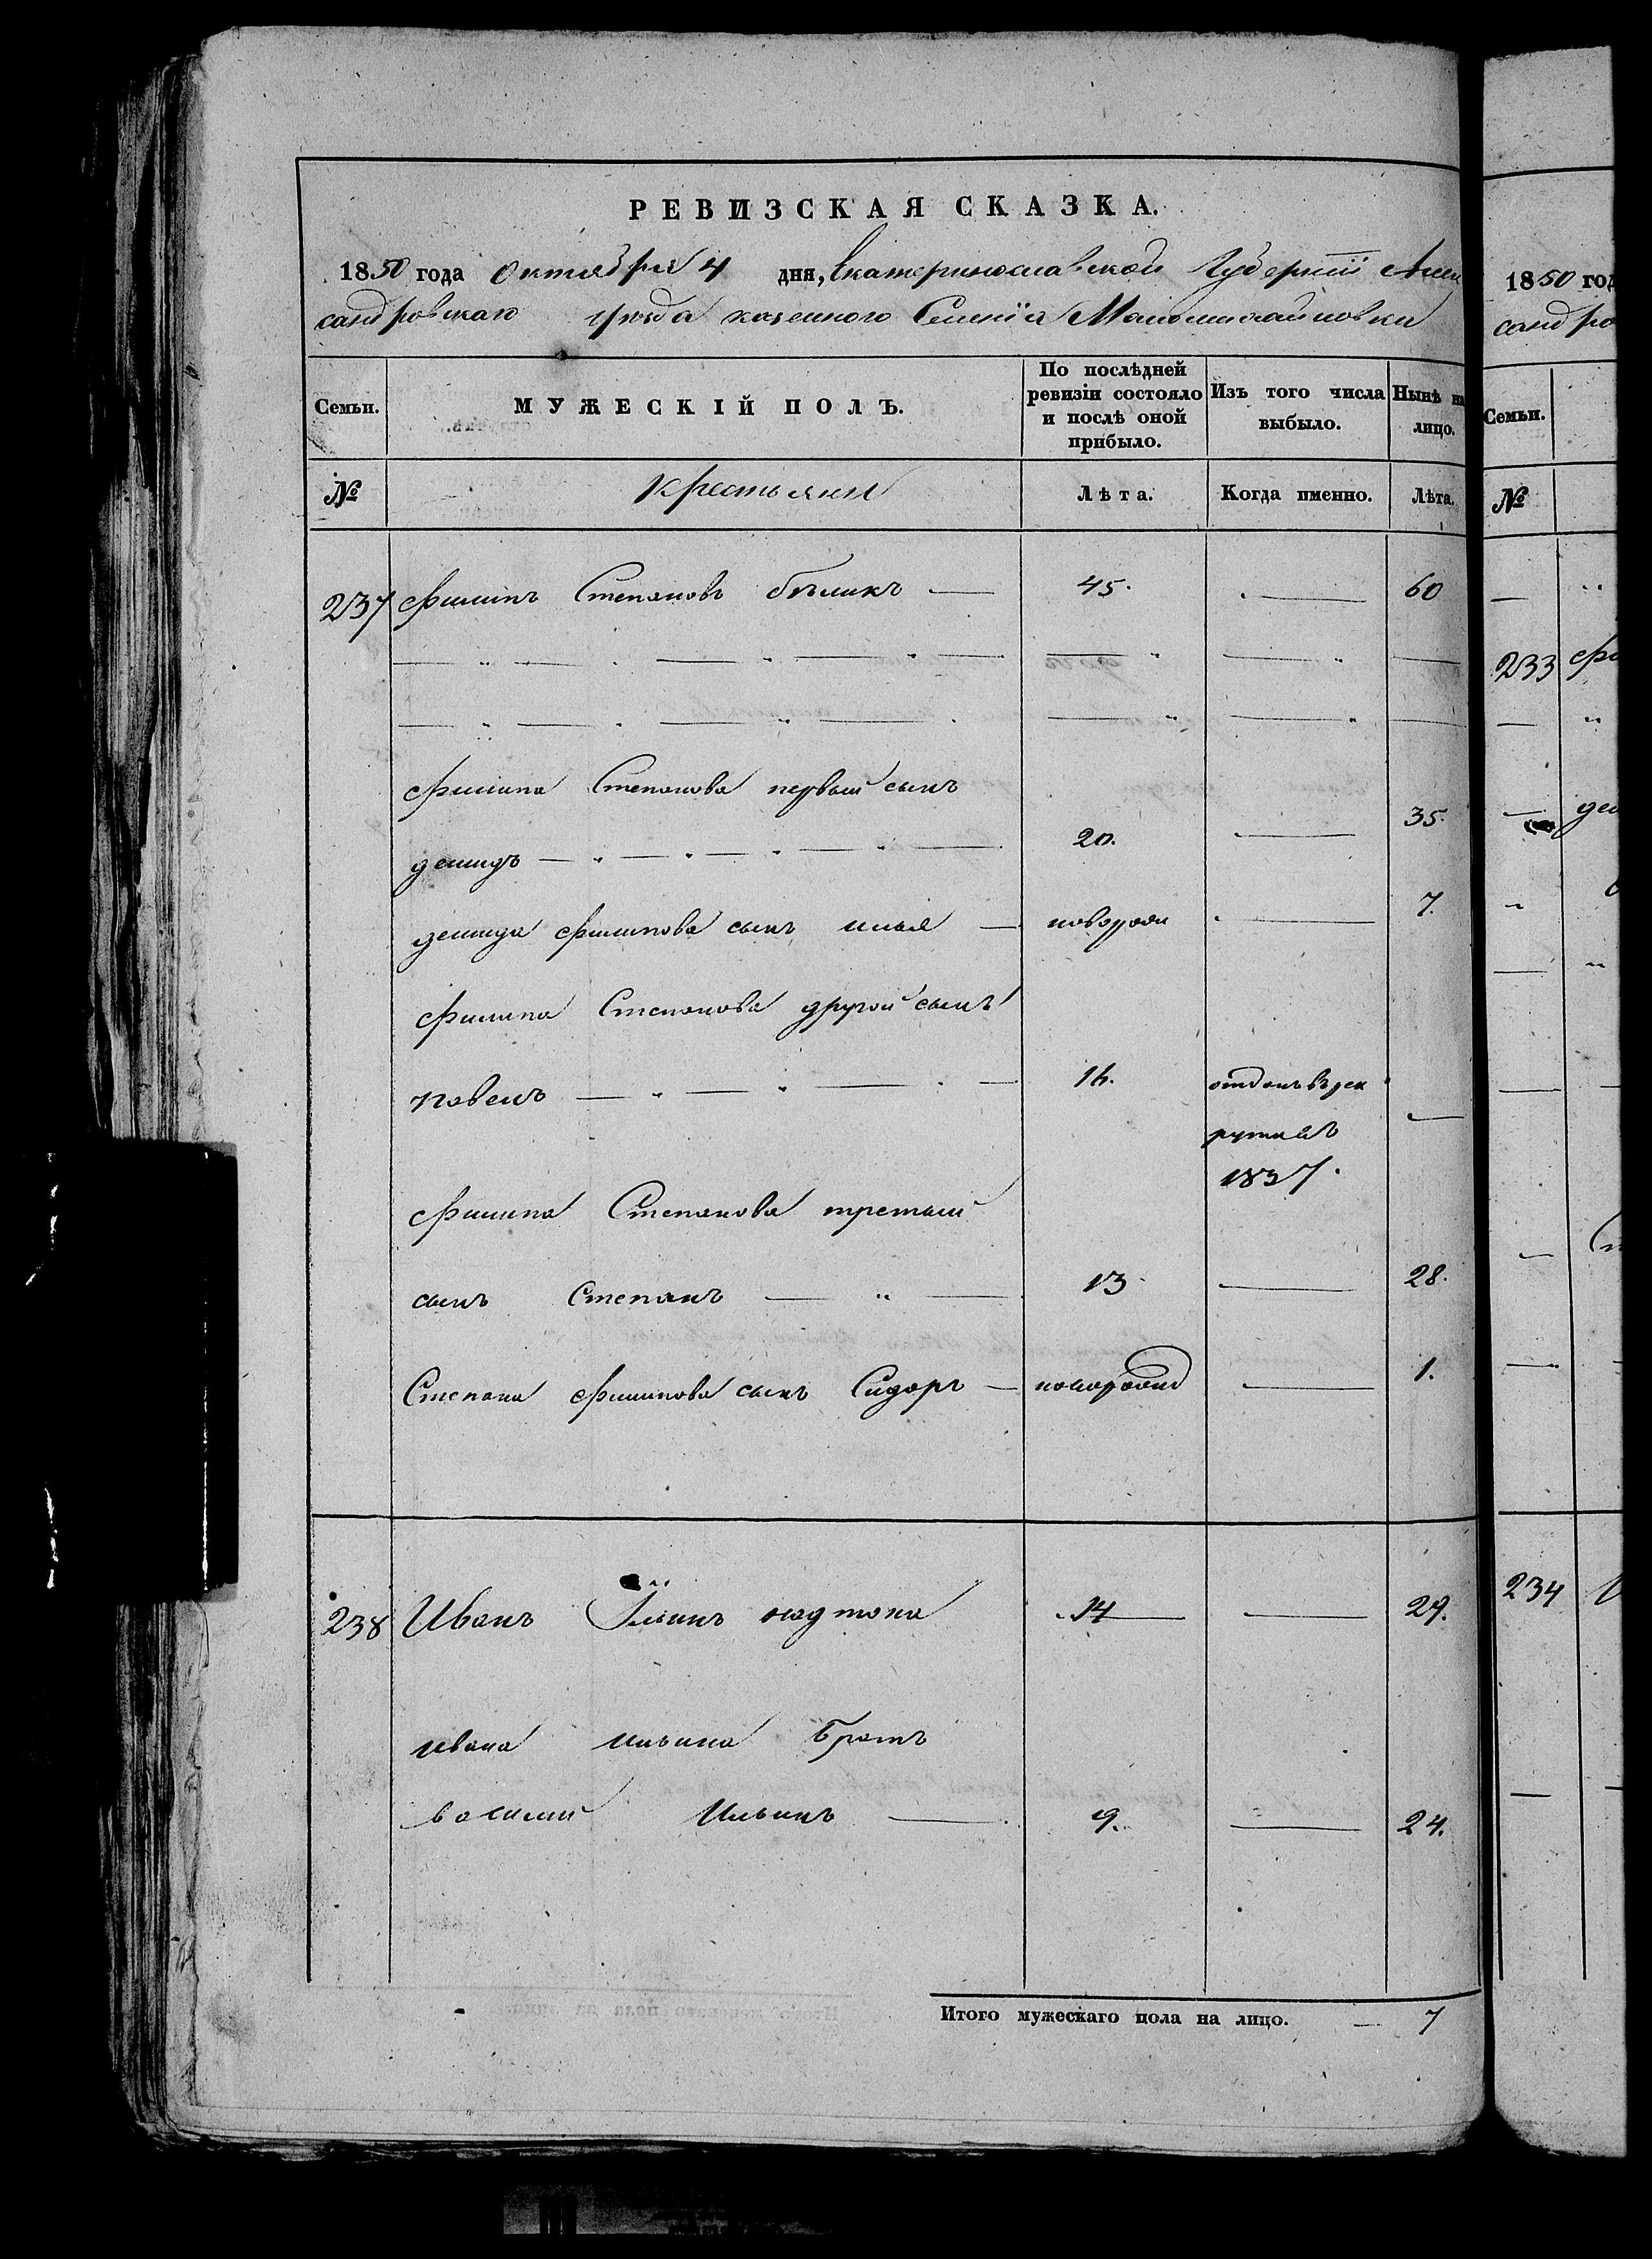 РЕВИЗСКАЯ СКАЗКА.
1850 года октября 4 дня, Екатеринославской Губернiи Алек
сандровскаго уѣзда казеннаго Селенiя Маломихайловки
Семьи.
МУЖЕСКIЙ ПОЛЪ.
По послѣдней ревизiи состояло и послѣ оной прибыло.
Изъ того числа выбыло.
Нынѣ на лицо.
№
Крестьяни
Лѣта.
Когда именно.
Лѣта.
237 Филипъ Степановъ бѣликъ — 45. — 60
Филипа Степанова первый сынъ
демидъ — 20. — 35.
демида Филипова сынъ илья — новорож — 7.
Филипа Степанова другой сынъ
павелъ — 16. отданъ въ рек
рутахъ —
1837.
Филипа Степанова третый
сынъ Степанъ — 13 — 28.
Степана Филипова сынъ Сидоръ — новорожд — 1.
238 Иванъ Ильинъ надтока 14 — 29.
ивана ильина братъ
василий Ильинъ — 9. — 24.
Итого мужескаго пола на лицо. — 7
1850 год
сандро
Семьи.
№
233 Фи
234